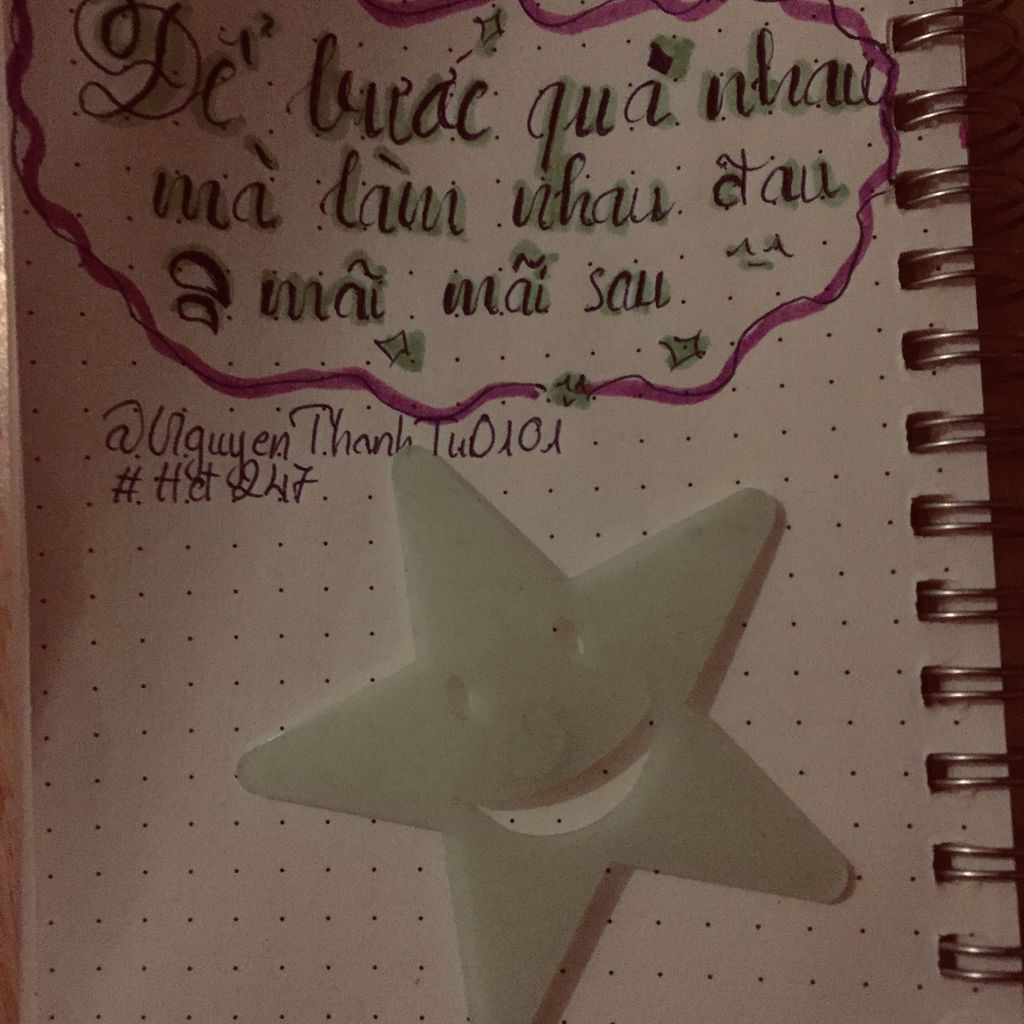 Để bước quả nhau
mà làm nhau đau
mãi mãi sau
@NguyenThanhTuD101